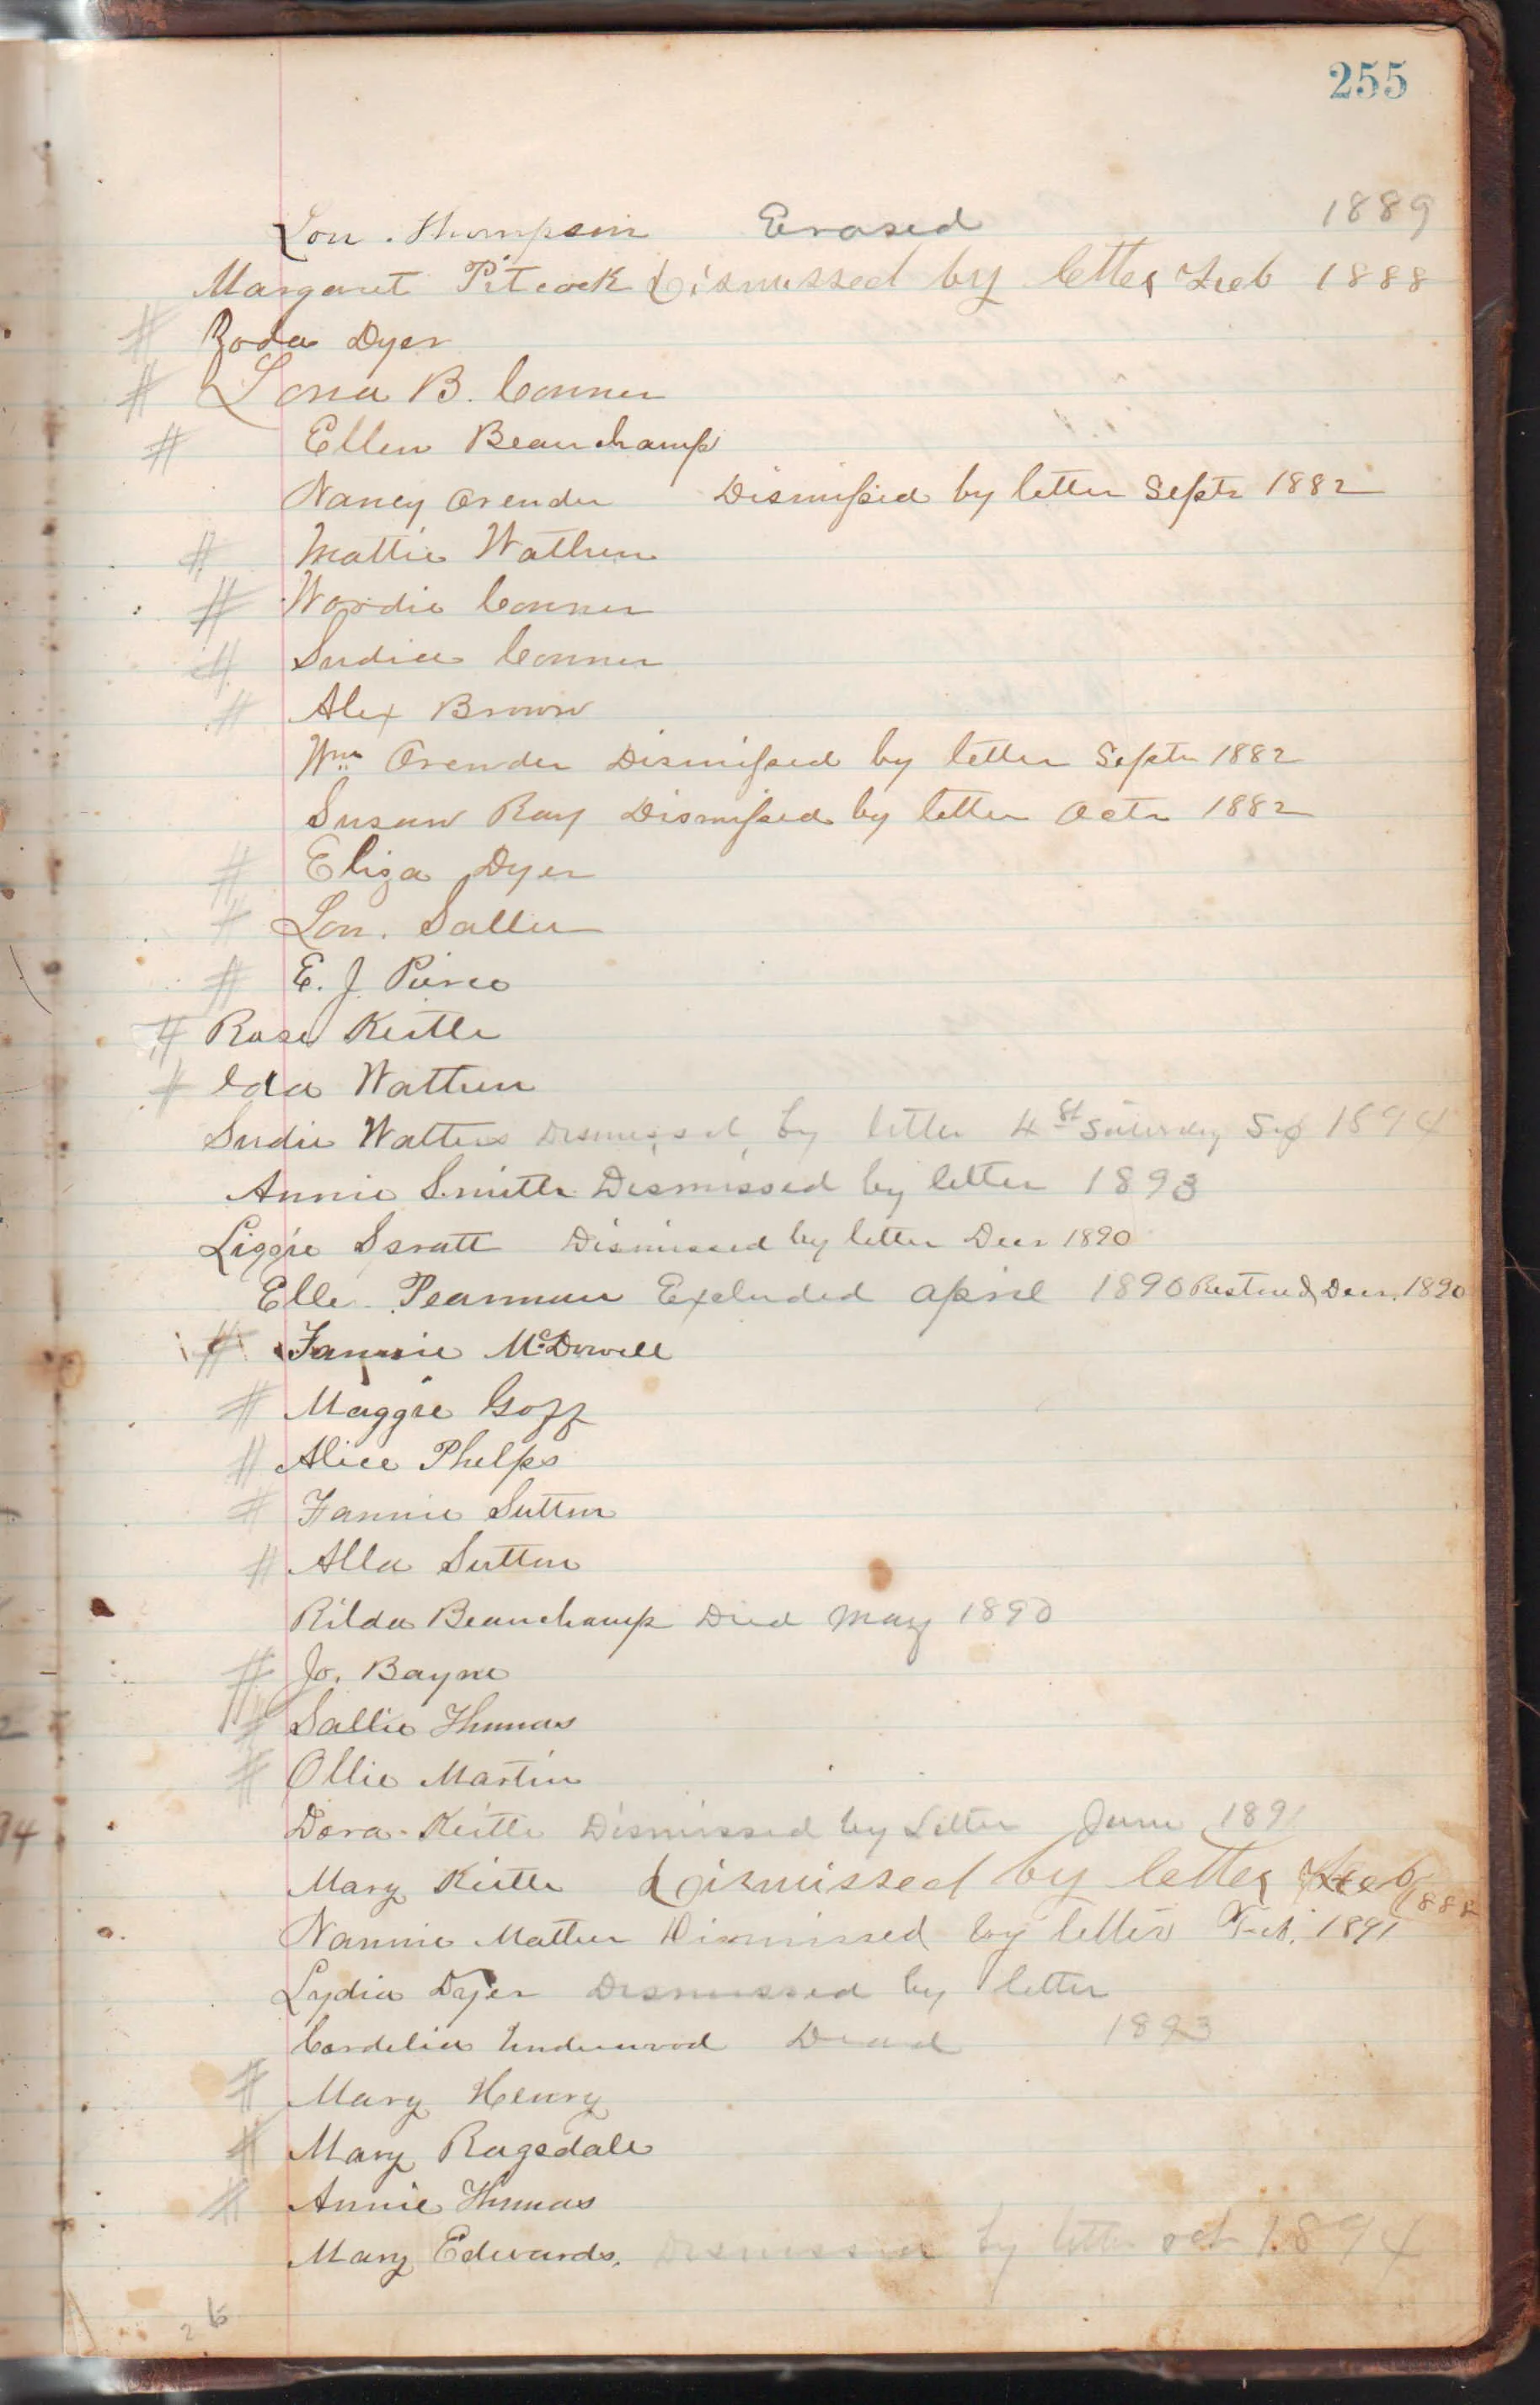 255
Lou. Thompson Erased 1889
Margaret Pitcock Dismissed by letter Feb 1888
# Zoda Dyer
# Lona B. Conner
# Ellen Beauchamp
Nancy Orender Dismissed by letter Septr 1882
# Mattie Wathen
# Wordie Conner
# Sudia Conner
# Alex Brown
Wm Orender Dismissed by letter Septr 1882
Susan Ray Dismissed by letter Octr 1882
# Eliza Dyer
# Lou. Sallee
# E. J. Pierce
# Rose Keith
# Ida Wathen
Sudie Watters Dismissed by letter 4st Saturday Sep 1894
Annie Smith Dismissed by letter 1893
Lizzie Spratt Dismissed by letter Decr 1890
Elle Pearman Excluded April 1890 Restored Decr. 1890
# Fannie McDowell
# Maggie Goff
# Alice Phelps
# Fannie Sutton
# Alla Sutton
Rilda Beauchamp Died May 1890
# Jo. Bayne
# Sallie Thomas
# Ollie Martin
Dora Keith Dismissed by Letter June 1891
Mary Keith Dismissed by letter Feb 1888
Nannie Mather Dismissed by letter Feb. 1891
Lydia Dyer Dismissed by letter
Cordelia Underwood Dead 1893
# Mary Henry
# Mary Ragsdale
# Annie Thomas
Mary Edwards. Dismissed by letter oct 1894